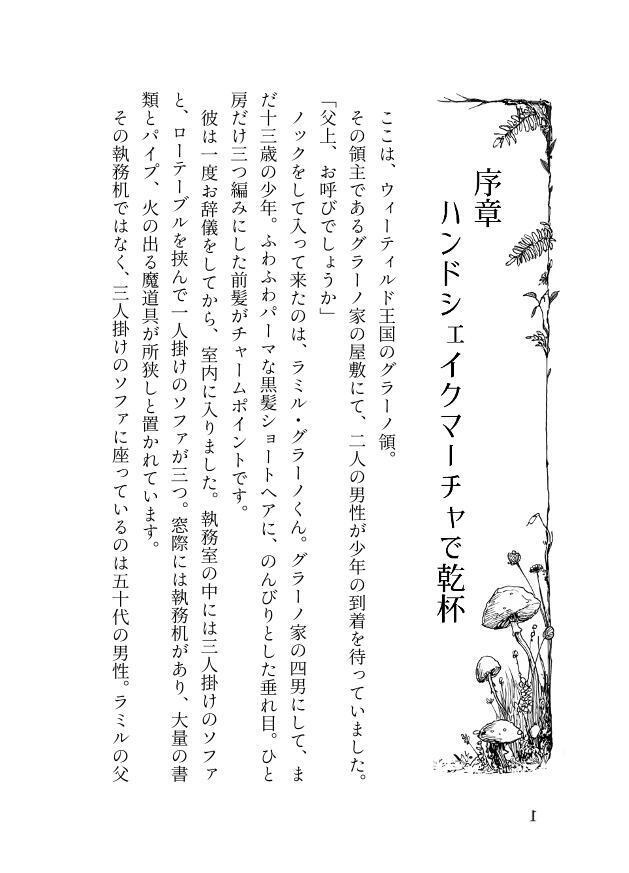 序章
ハンドシェイクマーチャで乾杯
ここは、ウィーティルド王国のグラーノ領。
その領主であるグラーノ家の屋敷にて、二人の男性が少年の到着を待っていました。
「父上、お呼びでしょうか」
ノックをして入って来たのは、ラミル・グラーノくん。グラーノ家の四男にして、ま
だ十三歳の少年。ふわふわパーマな黒髪ショートヘアに、のんびりとした垂れ目。ひと
房だけ三つ編みにした前髪がチャームポイントです。
彼は一度お辞儀をしてから、室内に入りました。執務室の中には三人掛けのソファ
と、ローテーブルを挟んで一人掛けのソファが三つ。窓際には執務机があり、大量の書
類とパイプ、火の出る魔道具が所狭しと置かれています。
その執務机ではなく、三人掛けのソファに座っているのは五十代の男性。ラミルの父
1